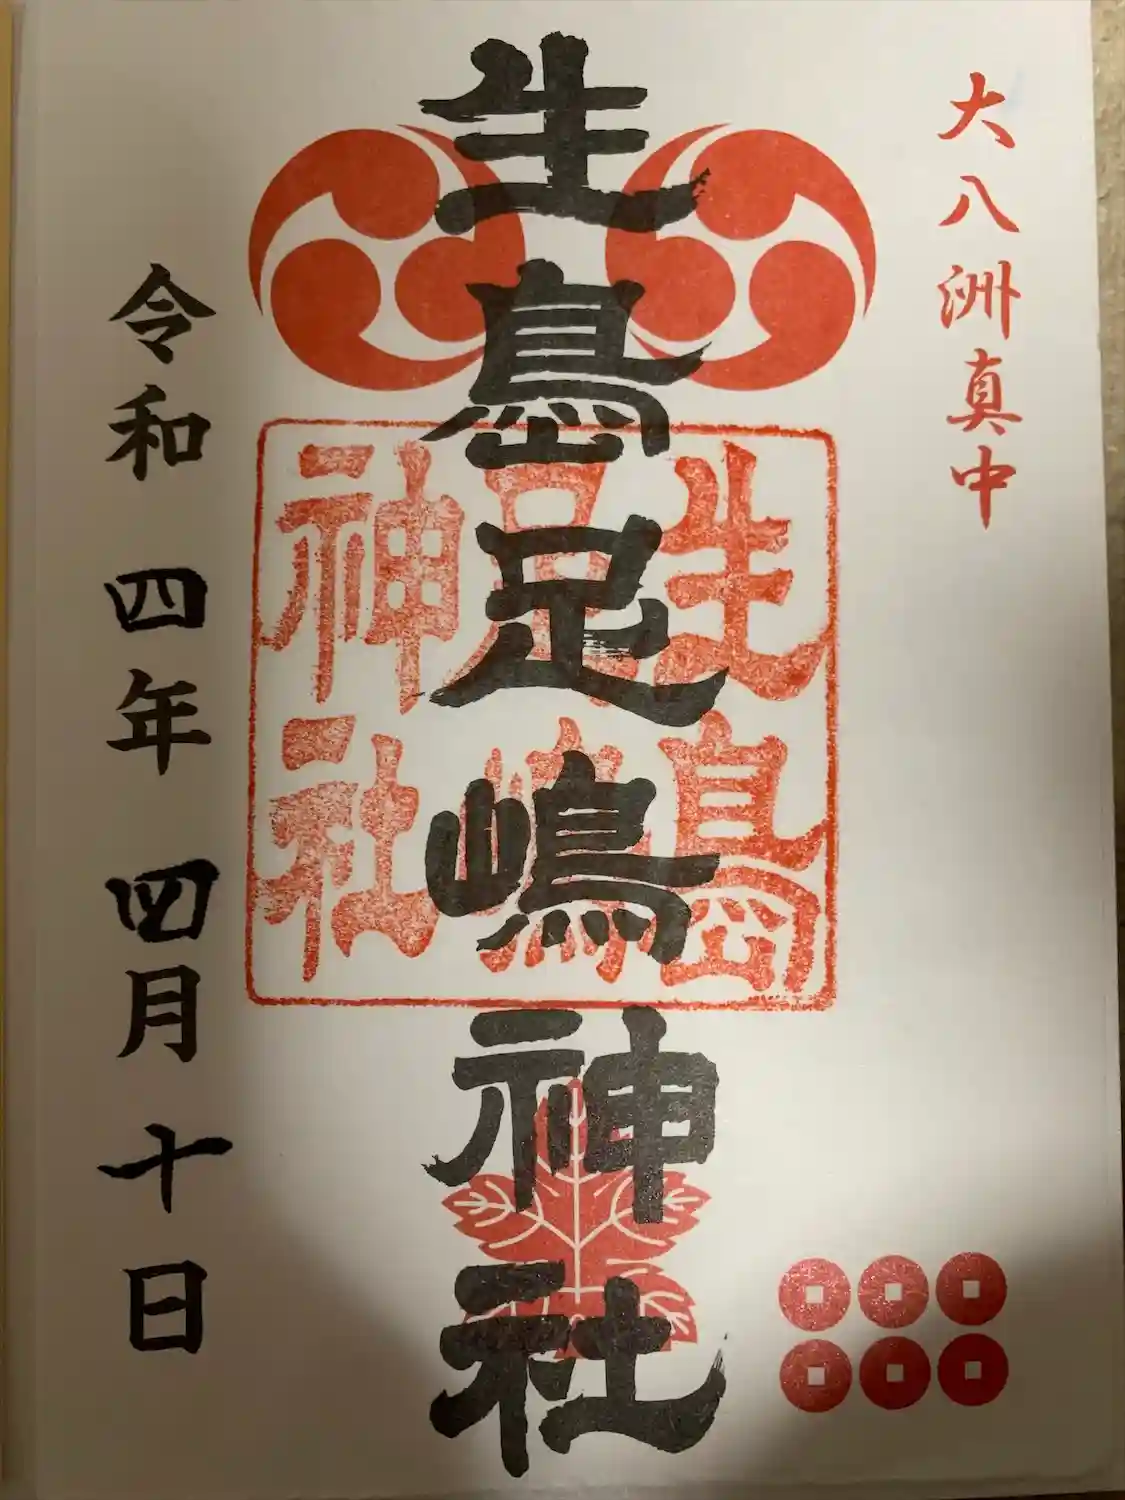 大八洲真中
生島足嶋神社
生島足嶋神社
令和四年四月十日